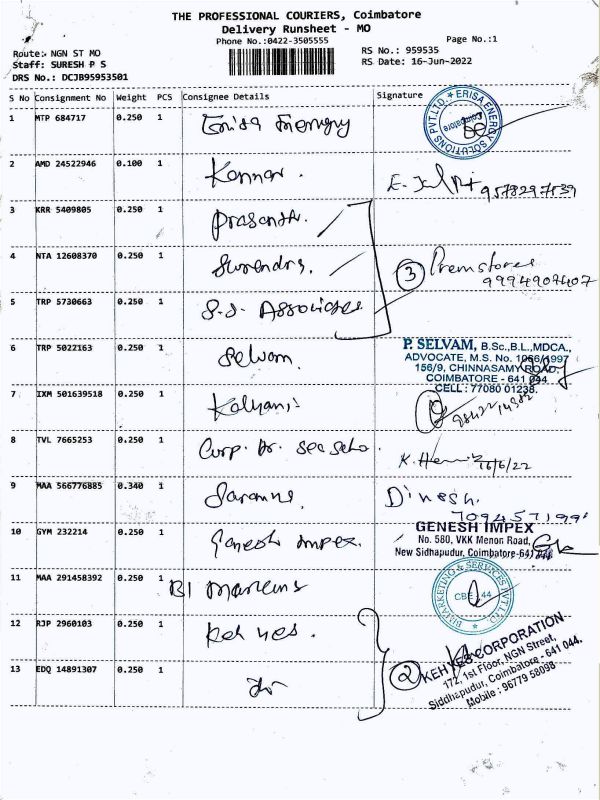 THE PROFESSIONAL COURIERS, Coimbatore
Delivery Runsheet - MO
Phone No.:0422-3505555
Page No.:1
Route:- NGN ST MO
Staff: SURESH P S
DRS No.: DCJB95953501
RS No.: 959535
RS Date: 16-Jun-2022
S No Consignment No Weight PCS Consignee Details Signature
1 MTP 684717 0.250 1 Erisa Energy
ERISA ENERGY SOLUTIONS PVT.LTD. * Coimbatore
2 AMD 24522946 0.100 1 Kannan. 9578297539
3 KRR 5409805 0.250 1 Prasanth.
4 NTA 12608370 0.250 1 Surendra. 3 Premstores
9994907407
5 TRP 5730663 0.250 1 S.J. Associates
6 TRP 5022163 0.250 1 Selvam.
P. SELVAM, B.Sc.,B.L.,MDCA.,
ADVOCATE, M.S. No. 1066/1997
156/9, CHINNASAMY ROAD,
COIMBATORE - 641 044.
CELL : 77080 01238.
7 IXM 501639518 0.250 1 Kalyani
8 TVL 7665253 0.250 1 Corp. Br. Sec Scho. 16/6/22
9 MAA 566776885 0.340 1 Dinesh.
10 GYM 232214 0.250 1 Ganesh Impex.
GENESH IMPEX
No. 580, VKK Menon Road,
New Sidhapudur, Coimbatore-641
11 MAA 291458392 0.250 1 BI Marketing
BI MARKETING & SERVICES PVT LTD.
CBE 44
12 RJP 2960103 0.250 1 Keh yes.
13 EDQ 14891307 0.250 1 2
KEH YES CORPORATION
172, 1st Floor, NGN Street,
Siddhapudur, Coimbatore - 641 044.
Mobile : 96779 58098